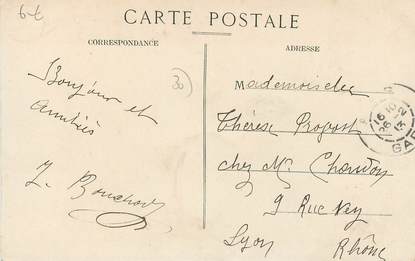 6-t
CARTE POSTALE
CORRESPONDANCE
ADRESSE
30
Bonjour et
Amitiés
Mademoiselle
Thérèse
chez Mr Chandon
9 Rue Ney
Lyon
Rhône
16 10
26 2
13
GAR